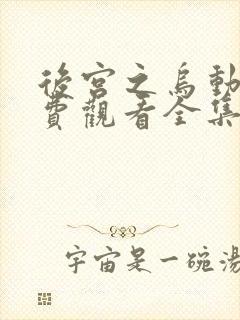 後宮之烏動
費觀看全集
宇宙是一碗湯